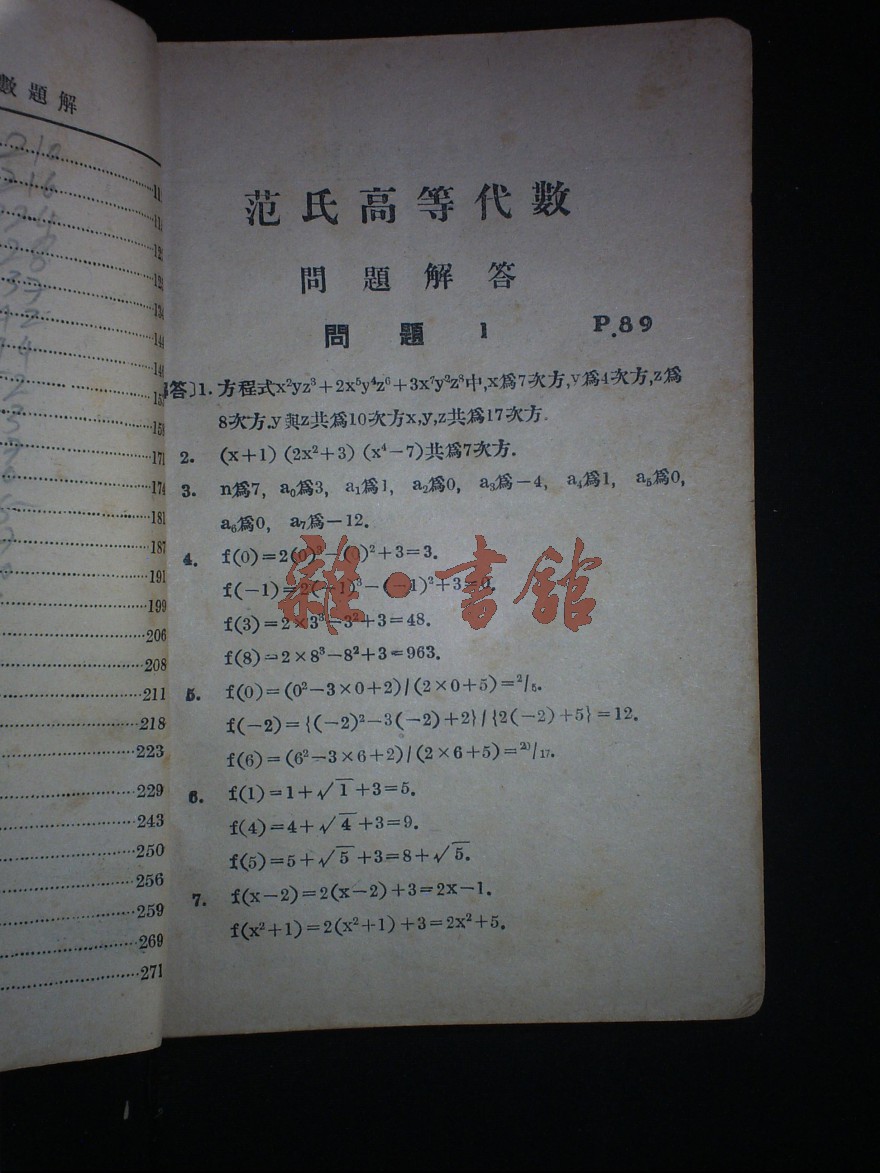 數題解
11
11
12
12
13
14
14
15
158
171
174
181
187
191
199
206
208
211
218
223
229
243
250
256
259
269
271
范氏高等代數
問題解答
問題 1 P.89
答〕1. 方程式x²yz³+2x⁵y⁴z⁶+3x⁷y²z⁸中,x爲7次方,y爲4次方,z爲
8次方.y與z共爲10次方x,y,z共爲17次方.
2. (x+1) (2x²+3) (x⁴-7)共爲7次方.
3. n爲7, a₀爲3, a₁爲1, a₂爲0, a₃爲-4, a₄爲1, a₅爲0,
a₆爲0, a₇爲-12.
4. f(0)=2(0)³-(0)²+3=3.
f(-1)=2(-1)³-(-1)²+3=0.
f(3)=2×3³-3²+3=48.
f(8)=2×8³-8²+3=963.
5. f(0)=(0²-3×0+2)/(2×0+5)=²/₅.
f(-2)={(-2)²-3(-2)+2}/{2(-2)+5}=12.
f(6)=(6²-3×6+2)/(2×6+5)=²⁰/₁₇.
6. f(1)=1+√1+3=5.
f(4)=4+√4+3=9.
f(5)=5+√5+3=8+√5.
7. f(x-2)=2(x-2)+3=2x-1.
f(x²+1)=2(x²+1)+3=2x²+5.
雜·書館